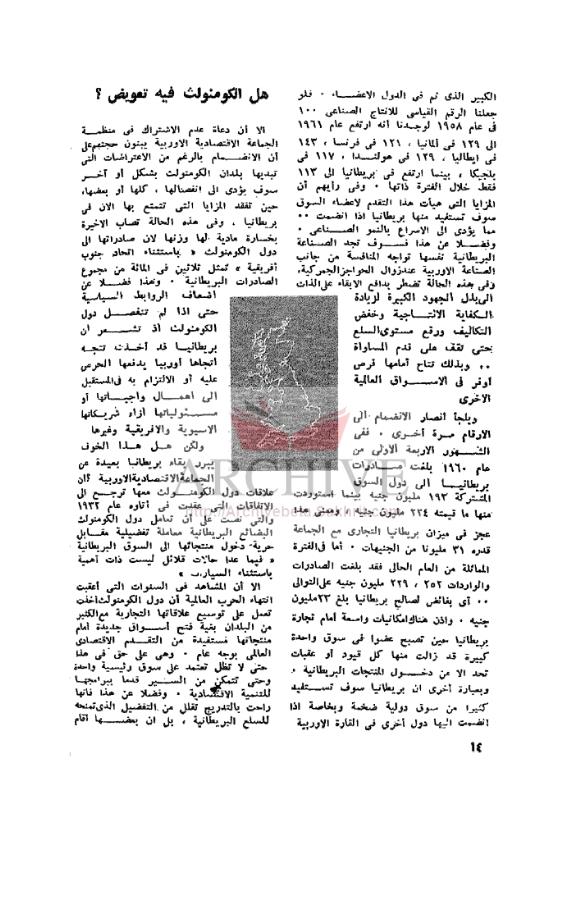 الكبير الذى تم فى الدول الاعضاء ٠ فلو
جعلنا الرقم القياسى للانتاج الصناعى ١٠٠
فى عام ١٩٥٨ لوجدنا أنه ارتفع عام ١٩٦١
الى ١٢٩ فى ألمانيا ، ١٢١ فى فرنسا ، ١٤٣
فى ايطاليا ، ١٢٩ فى هولندا ، ١١٧ فى
بلجيكا ، بينما ارتفع فى بريطانيا الى ١١٣
فقط خلال الفترة ذاتها ٠ وفى رأيهم أن
المزايا التى هيأت هذا التقدم لاعضاء السوق
سوف تستفيد منها بريطانيا اذا انضمت ٠٠
مما يؤدى الى الاسراع بالنمو الصناعى ٠
وفضلا عن هذا فسوف تجد الصناعة
البريطانية نفسها تواجه المنافسة من جانب
الصناعة الاوربية عندزوال الحواجزالجمركية،
وفى هذه الحالة تضطر بدافع الابقاء على الذات
الى بذل الجهود الكبيرة لزيادة
الكفاية الانتاجية وخفض
التكاليف ورفع مستوى السلع
حتى تقف على قدم المساواة
٠٠ وبذلك تتاح أمامها فرص
أوفر فى الاسواق العالمية
الاخرى
ويلجأ أنصار الانضمام الى
الارقام مرة أخرى ، ففى
الشهور الاربعة الاولى من
عام ١٩٦٠ بلغت صادرات
بريطانيا الى دول السوق
المشتركة ١٩٣ مليون جنيه بينما استوردت
منها ما قيمته ٢٢٤ مليون جنيه ، ومعنى هذا
عجز فى ميزان بريطانيا التجارى مع الجماعة
قدره ٣١ مليونا من الجنيهات ٠ أما فى الفترة
المماثلة من العام الحالى فقد بلغت الصادرات
والواردات ٢٥٢ ، ٢٢٩ مليون جنيه على التوالى
٠٠ أى بفائض لصالح بريطانيا بلغ ٢٣مليون
جنيه ٠ واذن هناك امكانيات واسعة أمام تجارة
بريطانيا حين تصبح عضوا فى سوق واحدة
كبيرة قد زالت منها كل قيود أو عقبات
تحد الا من دخول المنتجات البريطانية ٠
وبعبارة أخرى ان بريطانيا سوف تستفيد
كثيرا من سوق دولية ضخمة وبخاصة اذا
انضمت اليها دول أخرى فى القارة الاوربية
هل الكومنولث فيه تعويض ؟
الا أن دعاة عدم الاشتراك فى منظمة
الجماعة الاقتصادية الاوربية يبنون حججهم على
أن الانضمام بالرغم من الاعتراضات التى
تبديها بلدان الكومنولث بشكل أو آخر
سوف يؤدى الى انفصالها ، كلها أو بعضها،
حين تفقد المزايا التى تتمتع بها الآن فى
بريطانيا ، وفى هذه الحالة تصاب الاخيرة
بخسارة مادية لها وزنها لان صادراتها الى
دول الكومنولث « باستثناء اتحاد جنوب
أفريقية » تمثل ثلاثين فى المائة من مجموع
الصادرات البريطانية ٠ وهذا فضلا عن
اضعاف الروابط السياسية
حتى اذا لم تنفصل دول
الكومنولث اذ تشعر أن
بريطانيا قد أخذت تتجه
اتجاها أوربيا يدفعها الحرص
عليه أو الالتزام به فى المستقبل
الى اهمال واجباتها أو
مسئولياتها ازاء شريكاتها
الاسيوية والافريقية وغيرها
ولكن هل هذا الخوف
يبرر ابقاء بريطانيا بعيدة عن
الجماعة الاقتصادية الاوربية ؟ ان
علاقات دول الكومنولث معها ترجع الى
الاتفاقات التى عقدت فى أتاوه عام ١٩٣٢
والتى نصت على أن تعامل دول الكومنولث
البضائع البريطانية معاملة تفضيلية مقابل
حرية دخول منتجاتها الى السوق البريطانية
« فيما عدا حالات قلائل ليست ذات أهمية
باستثناء السيارات »
الا أن المشاهد فى السنوات التى أعقبت
انتهاء الحرب العالمية أن دول الكومنولث أخذت
تعمل على توسيع علاقاتها التجارية مع الكثير
من البلدان بغية فتح أسواق جديدة أمام
منتجاتها مستفيدة من التقدم الاقتصادى
العالمى بوجه عام ٠ وهى على حق فى هذا
حتى لا تظل تعتمد على سوق رئيسية واحدة
وحتى تتمكن من السير قدما ببرامجها
للتنمية الاقتصادية ٠ وفضلا عن هذا فانها
راحت بالتدريج تقلل من التفضيل الذى تمنحه
للسلع البريطانية ، بل ان بعضها أقام
١٤
ARCHIVE